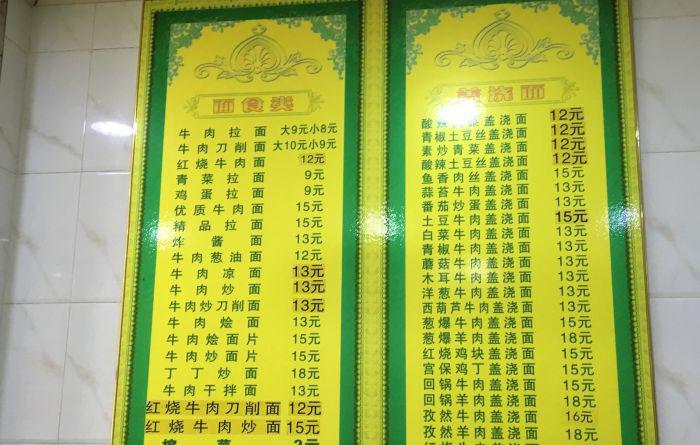 面食类
牛肉拉面 大9元小8元
牛肉刀削面 大10元小9元
红烧牛肉面 12元
青菜拉面 9元
鸡蛋拉面 9元
优质牛肉面 15元
精品拉面 15元
炸酱面 13元
牛肉葱油面 12元
牛肉凉面 13元
牛肉炒面 13元
牛肉炒刀削面 13元
牛肉烩面 13元
牛肉烩面片 15元
牛肉炒面片 15元
丁丁炒面 18元
牛肉干拌面 13元
红烧牛肉刀削面 12元
红烧牛肉炒面 15元
盖浇面
酸辣白菜盖浇面 12元
青椒土豆丝盖浇面 12元
素炒青菜盖浇面 12元
酸辣土豆丝盖浇面 12元
鱼香肉丝盖浇面 15元
蒜苔牛肉盖浇面 13元
番茄炒蛋盖浇面 13元
土豆牛肉盖浇面 15元
白菜牛肉盖浇面 13元
青椒牛肉盖浇面 13元
蘑菇牛肉盖浇面 13元
木耳牛肉盖浇面 13元
洋葱牛肉盖浇面 13元
西葫芦牛肉盖浇面 13元
葱爆牛肉盖浇面 15元
葱爆羊肉盖浇面 18元
红烧鸡块盖浇面 15元
宫保鸡丁盖浇面 15元
回锅牛肉盖浇面 15元
回锅羊肉盖浇面 18元
孜然牛肉盖浇面 16元
孜然羊肉盖浇面 18元